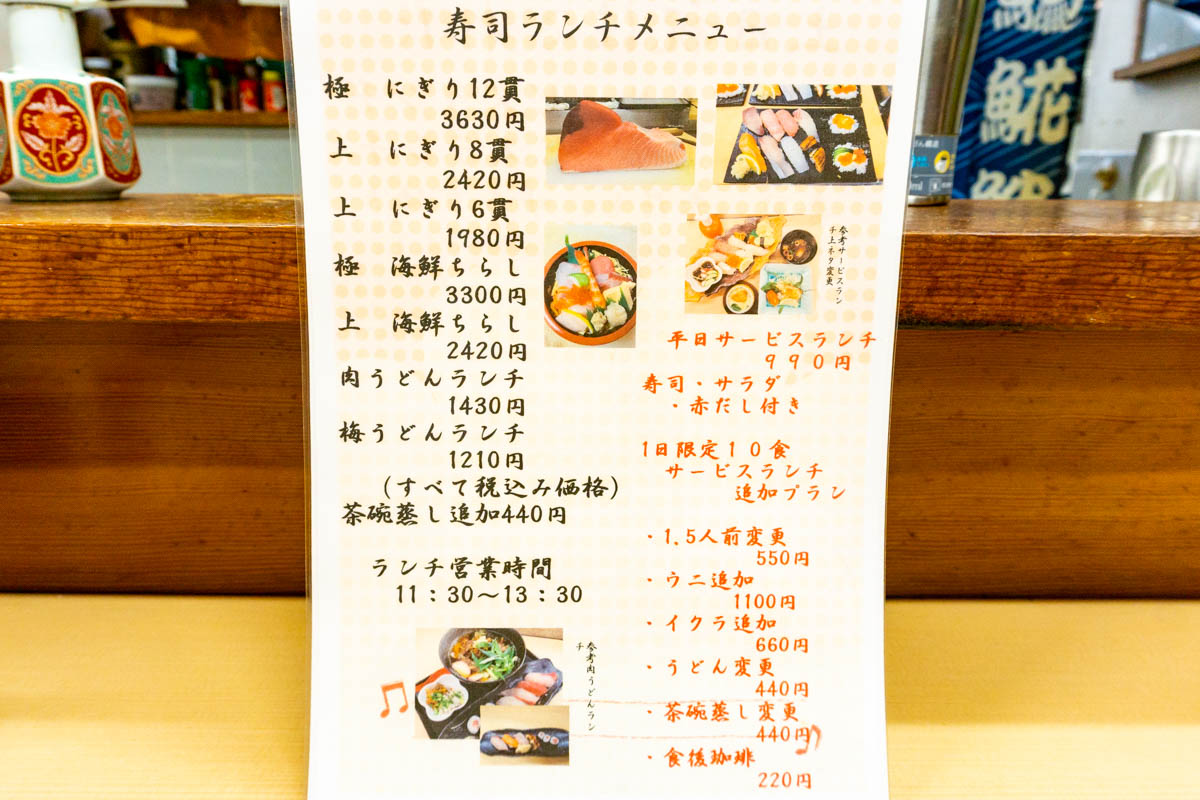 寿司ランチメニュー
極 にぎり12貫
3630円
上 にぎり8貫
2420円
上 にぎり6貫
1980円
極 海鮮ちらし
3300円
上 海鮮ちらし
2420円
肉うどんランチ
1430円
梅うどんランチ
1210円
(すべて税込み価格)
茶碗蒸し追加440円
ランチ営業時間
11：30〜13：30
参考肉うどんラン
チ
参考サービスラン
チ上ネタ変更
平日サービスランチ
９９０円
寿司・サラダ
・赤だし付き
1日限定１０食
サービスランチ
追加プラン
・1.5人前変更
550円
・ウニ追加
1100円
・イクラ追加
660円
・うどん変更
440円
・茶碗蒸し変更
440円
・食後珈琲
220円